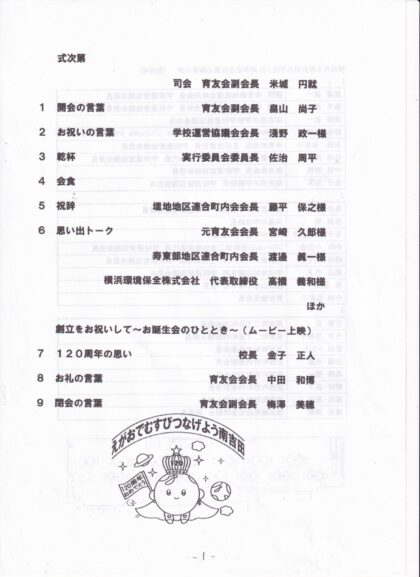 式次第
司会　育友会副会長　米城　円就
1　開会の言葉　育友会副会長　畠山　尚子
2　お祝いの言葉　学校運営協議会会長　淺野　政一様
3　乾杯　実行委員会委員長　佐治　周平
4　会食
5　祝辞　埋地地区連合町内会会長　藤平　保之様
6　思い出トーク　元育友会会長　宮崎　久郎様
寿東部地区町内会長　渡邉　眞一様
横浜環境保全株式会社　代表取締役　髙橋　義和様
ほか
創立をお祝いして～お誕生会のひととき～（ムービー上映）
7　１２０周年の思い　校長　金子　正人
8　お礼の言葉　育友会会長　中田　和博
9　閉会の言葉　育友会副会長　梅澤　美穂
えがおでむすびつなげよう南吉田
120
120周年
おめでとう
- 1 -